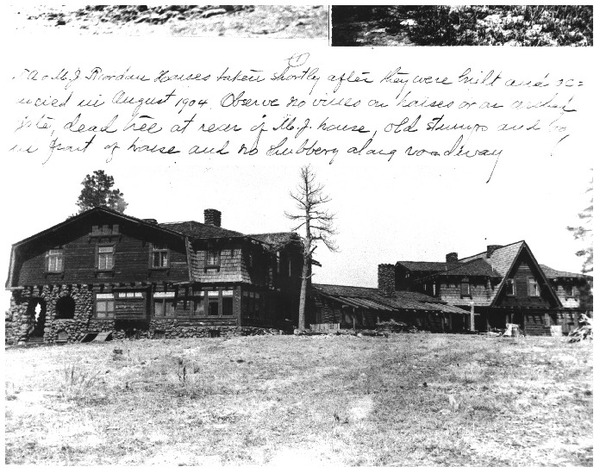 M.J. Riordan Houses taken shortly after they were built and oc=
cupied in August 1904. Observe no vines on houses or on arched
gate, dead tree at rear of M.J. house, old stumps and
in front of house and no shubbery along roadway